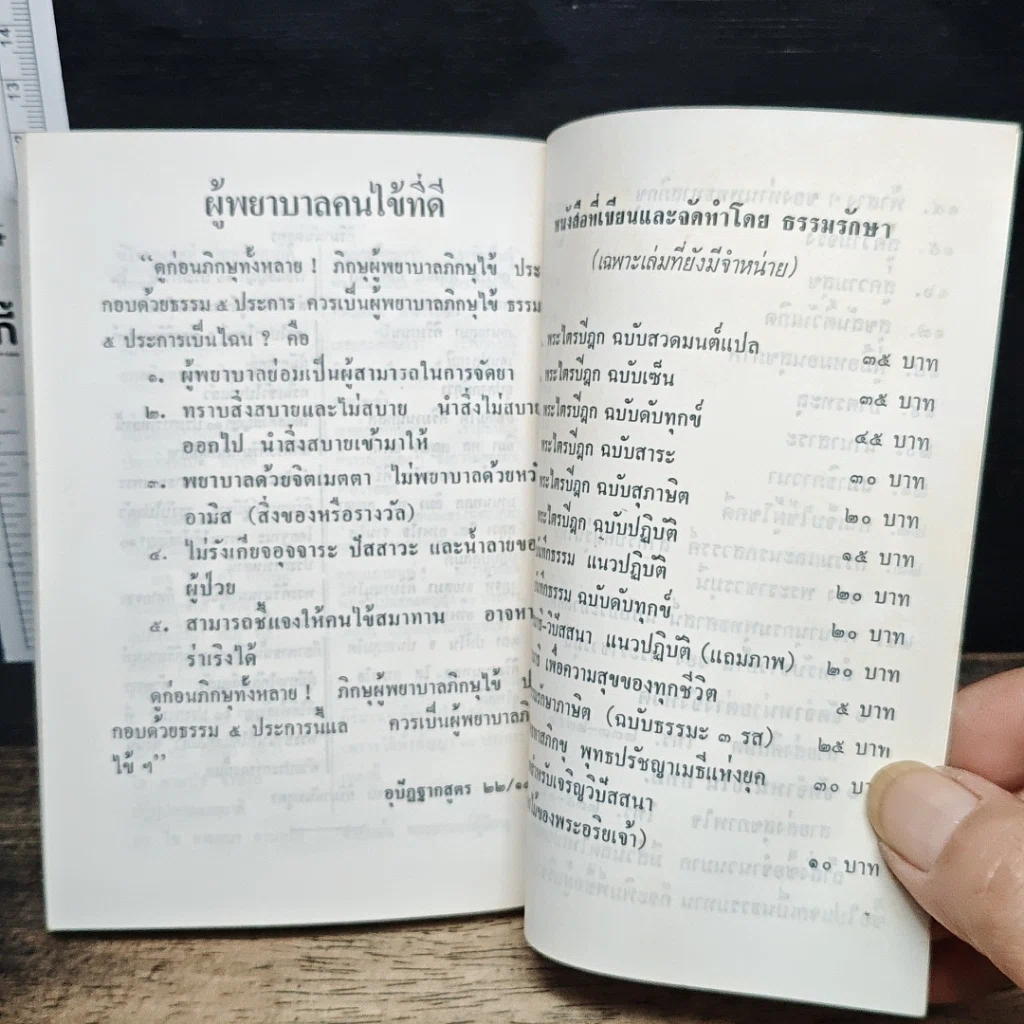 ผู้พยาบาลคนไข้ที่ดี
“ดูก่อนภิกษุทั้งหลาย ! ภิกษุผู้พยาบาลภิกษุไข้ ประ
กอบด้วยธรรม ๕ ประการ ควรเป็นผู้พยาบาลภิกษุไข้ ธรรม
๕ ประการเป็นไฉน ? คือ
๑. ผู้พยาบาลย่อมเป็นผู้สามารถในการจัดยา
๒. ทราบสิ่งสบายและไม่สบาย นำสิ่งไม่สบาย
ออกไป นำสิ่งสบายเข้ามาให้
๓. พยาบาลด้วยจิตเมตตา ไม่พยาบาลด้วยหวั
อามิส (สิ่งของหรือรางวัล)
๔. ไม่รังเกียจอุจจาระ ปัสสาวะ และน้ำลายขอ
ผู้ป่วย
๕. สามารถชี้แจงให้คนไข้สมาทาน อาจหา
ร่าเริงได้
ดูก่อนภิกษุทั้งหลาย ! ภิกษุผู้พยาบาลภิกษุไข้ ป
กอบด้วยธรรม ๕ ประการนี้แล ควรเป็นผู้พยาบาลภิ
ไข้ ๆ”
อุปัฏฐากสูตร ๒๒/๑๘
หนังสือที่เขียนและจัดทำโดย ธรรมรักษา
(เฉพาะเล่มที่ยังมีจำหน่าย)
. พระไตรปิฎก ฉบับสวดมนต์แปล ๓๕ บาท
. พระไตรปิฎก ฉบับเซ็น ๓๕ บาท
พระไตรปิฎก ฉบับดับทุกข์ ๔๕ บาท
พระไตรปิฎก ฉบับสาระ ๓๐ บาท
พระไตรปิฎก ฉบับสุภาษิต ๒๐ บาท
พระไตรปิฎก ฉบับปฏิบัติ ๑๕ บาท
แนวปฏิบัติ ๒๐ บาท
ฉบับดับทุกข์ ๒๐ บาท
-วิปัสสนา แนวปฏิบัติ (แถมภาพ) ๒๐ บาท
เพื่อความสุขของทุกชีวิต ๕ บาท
(ฉบับธรรมะ ๓ รส) ๒๕ บาท
พุทธปรัชญาเมธีแห่งยุค ๓๐ บา
เจริญวิปัสสนา
ของพระอริยเจ้า) ๑๐ บาท
14
13